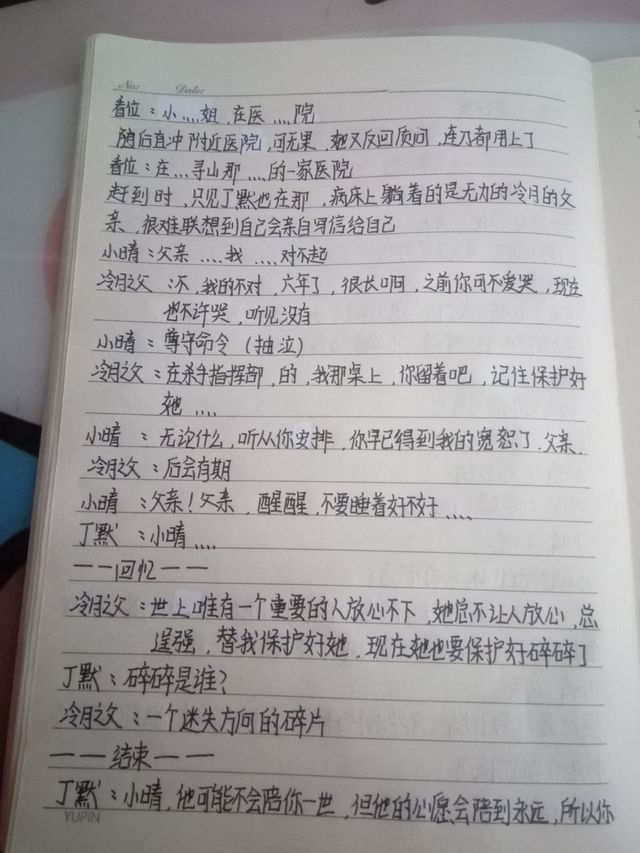 No:
Date:
看位：小,,,,姐,在医,,,,院
随后直冲附近医院,可无果,她又反回质问,连刀都用上了
看位：在...寻山那,,,,的一家医院
赶到时,只见丁默也在那,病床上躺着的是无力的冷月的父
亲,很难联想到自己会亲自写信给自己
小晴：父亲,,,,我,,,,对不起
冷月之父：不,我的不对,六年了,很长啊,之前你可不爱哭,现在
也不许哭,听见没有
小晴：尊守命令(抽泣)
冷月之父：在杀手指挥部,的,我那桌上,你留着吧,记住保护好
她,,,,
小晴：无论什么,听从你安排,你早已得到我的宽恕了.父亲.
冷月之父：后会有期
小晴：父亲!父亲,醒醒,不要睡着好不好,,,,
丁默：小晴,,,,
——回忆——
冷月之父：世上唯有一个重要的人放心不下,她总不让人放心,总
逞强,替我保护好她,现在她也要保护好碎碎了
丁默：碎碎是谁?
冷月之父：一个迷失方向的碎片
——结束——
丁默：小晴,他可能不会陪你一世,但他的心愿会陪到永远,所以你
YUPIN